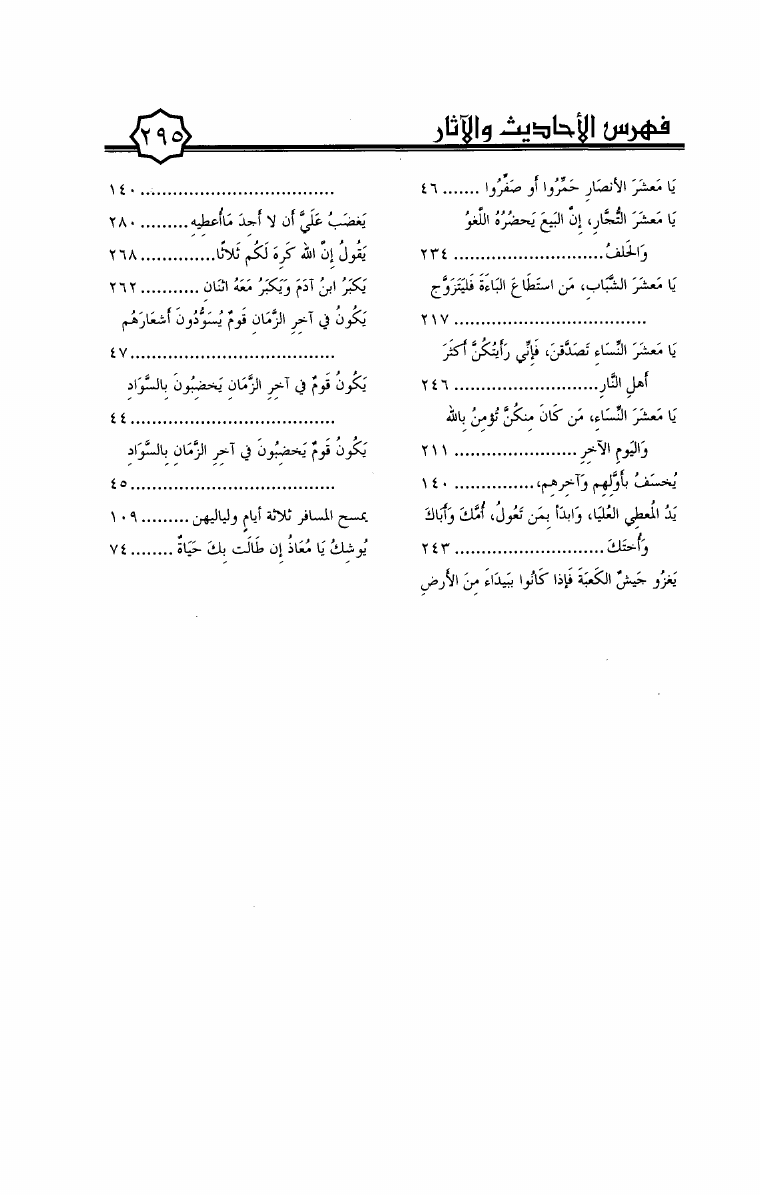 فهرس الأحاديث والآثار
٢٩٥
يَا مَعشَرَ الأنصَارِ حَمِّرُوا أو صَفِّرُوا ....... ٤٦
يَا مَعشَرَ التُّجَّارِ، إنَّ البَيعَ يَحضُرُهُ اللَّغوُ
وَالحَلفُ............................ ٢٣٤
يَا مَعشَرَ الشَّبَاب، مَن استَطَاعَ البَاءَةَ فَليَتَزَوَّج
.................................... ٢١٧
يَا مَعشَرَ النِّسَاءِ تَصَدَّقنَ، فَإنِّي رَأيتُكُنَّ أكثَرَ
أهلِ النَّارِ........................... ٢٤٦
يَا مَعشَرَ النِّسَاءِ، مَن كَانَ مِنكُنَّ تُؤمِنُ بِالله
وَاليَومِ الآخِرِ ....................... ٢١١
يُخسَفُ بأوَّلِهِم وَآخِرِهِم،............... ١٤٠
يَدُ المُعطِي العُليَا، وَابدَأ بِمَن تَعُولُ، أُمَّكَ وَأَبَاكَ
وَأُختَكَ............................ ٢٤٣
يَغزُو جَيشٌ الكَعبَةَ فَإذا كَانُوا بِبَيدَاءَ مِنَ الأَرضِ
.................................... ١٤٠
يَغضَبُ عَلَيَّ أن لا أجِدَ مَاأُعطِيهِ......... ٢٨٠
يَقُولُ إنَّ الله كَرِهَ لَكُم ثَلاثًا.............. ٢٦٨
يَكبَرُ ابنُ آدَمَ وَيَكبَرُ مَعَهُ اثنَانِ ........... ٢٦٢
يَكُونُ فِي آخِرِ الزَّمَانِ قَومٌ يُسَوُّدُونَ أشعَارَهُم
...................................... ٤٧
يَكُونُ قَومٌ فِي آخِرِ الزَّمَانِ يَخضِبُونَ بِالسَّوَادِ
...................................... ٤٤
يَكُونُ قَومٌ يَخضِبُونَ فِي آخِرِ الزَّمَانِ بِالسَّوَادِ
...................................... ٤٥
يمسح المسافر ثلاثة أيامٍ ولياليهن ......... ١٠٩
يُوشِكُ يَا مُعَاذُ إن طَالَت بِكَ حَيَاةٌ ........ ٧٤